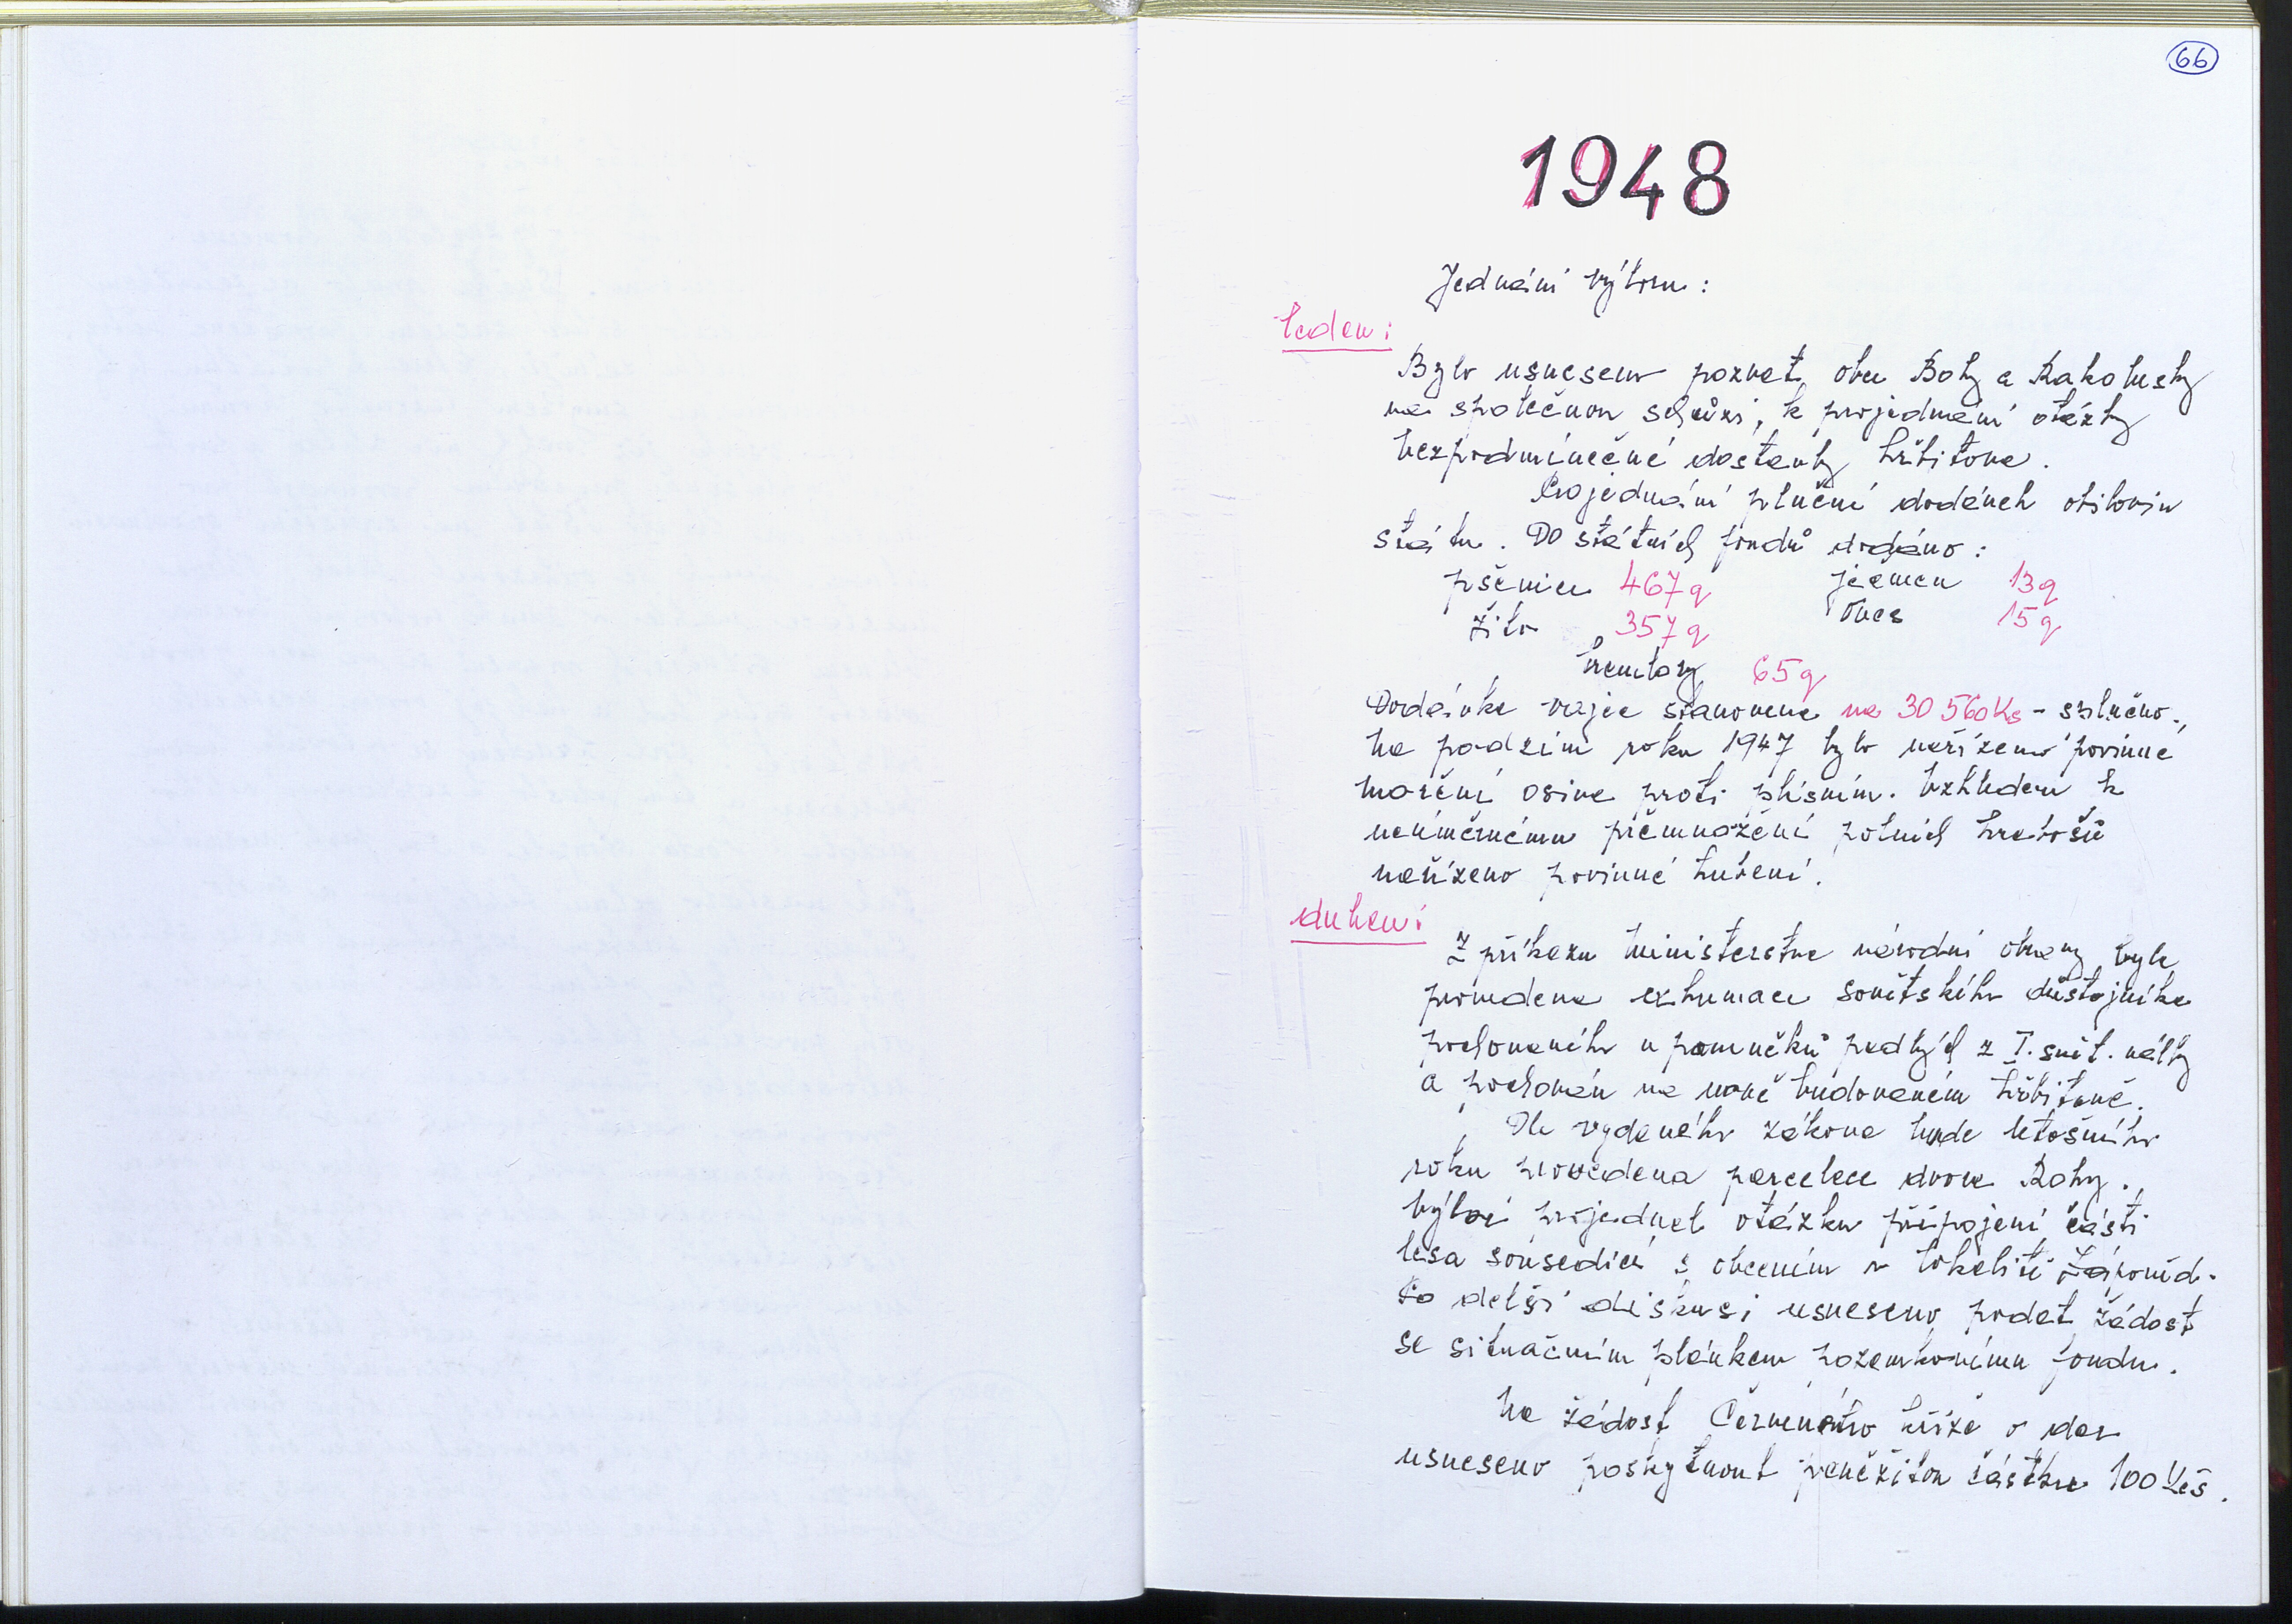 66
1948
Jednání výboru:
leden:
Bylo usneseno pozvat obce Bohy a Rakolusky
na společnou schůzi, k projednání otázky
bezpodmínečné dostavby hřbitova.
Projednání plnění dodávek obilovin
státu. Do státních fondů dodáno:
pšenice 467q ječmen 13q
žito 357q oves 15q
brambory 65q
Dodávka vajec stanovena na 30 560 Ks - splněno.
Na podzim roku 1947 bylo nařízeno povinné
moření osiva proti plísním. Vzhledem k
neúměrnému přemnožení polních hrabošů
nařízeno povinné hubení.
duben:
Z příkazu Ministerstva národní obrany byla
provedena exhumace sovětského důstojníka
pochovaného u pomníčků padlých z I. svět. války
a pochován na nově budovaném hřbitově.
Dle vydaného zákona bude letošního
roku provedena parcelace dvora Rohy.
Výbor projednal otázku připojení části
lesa sousedící s obecním v lokalitě
Po delší diskusi usneseno podat žádost
se situačním plánkem pozemkovému fondu.
Na žádost Červeného kříže o dar
usneseno poskytnout peněžitou částku 100 Kčs.